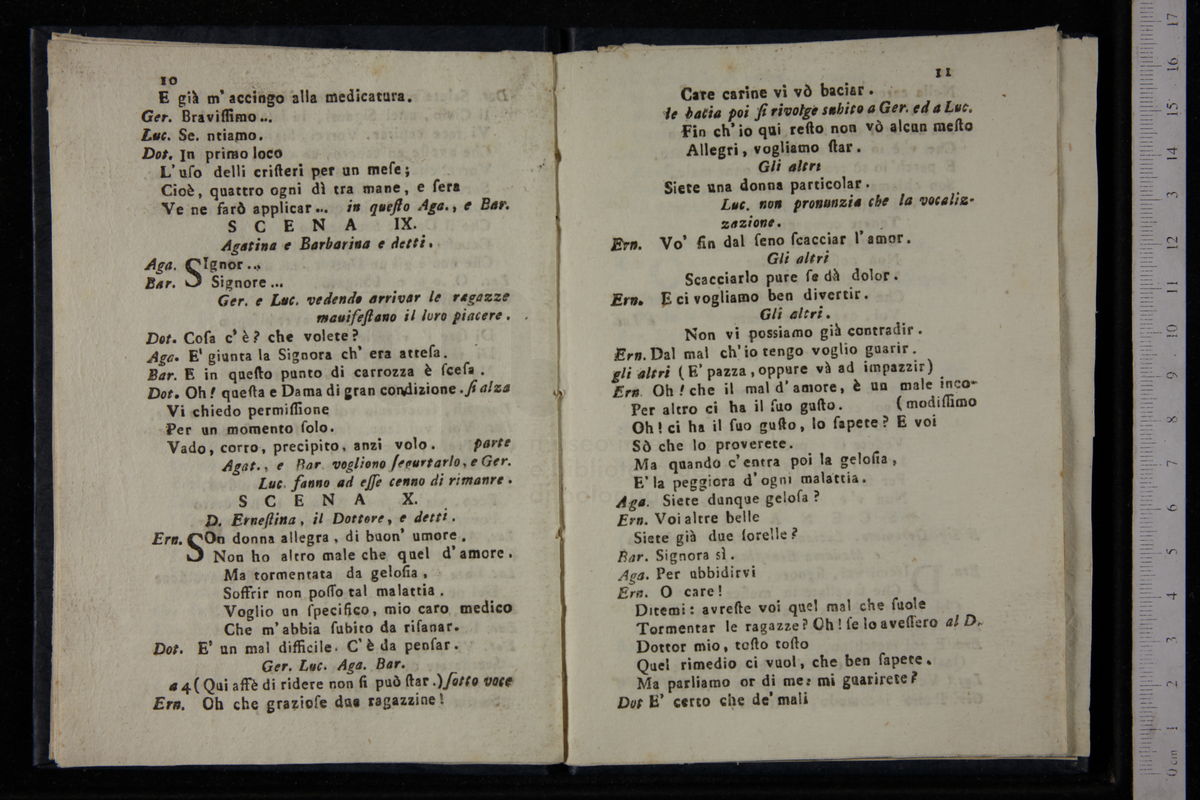 10
E già m'accingo alla medicatura.
Ger. Braviſſimo...
Luc. Se. ntiamo.
Dot. In primo loco
L'uſo delli criſteri per un meſe;
Cioè, quattro ogni dì tra mane, e ſera
Ve ne farò applicar... in queſto Aga., e Bar.
SCENA IX.
Agatina e Barbarina e detti.
Aga. SIgnor...
Bar. Signore...
Ger. e Luc. vedendo arrivar le ragazze
mauifeſtano il loro piacere.
Dot. Coſa c'è? che volete?
Aga. E' giunta la Signora ch' era atteſa.
Bar. E in queſto punto di carrozza è ſceſa.
Dot. Oh! queſta e Dama di gran condizione. ſi alza
Vi chiedo permiſſione
Per un momento ſolo.
Vado, corro, precipito, anzi volo. parte
Agat., e Bar. vogliono ſegurtarlo, e Ger.
Luc. fanno ad eſſe cenno di rimanre.
SCENA X.
D. Erneſtina, il Dottore, e detti.
Ern. SOn donna allegra, di buon' umore,
Non ho altro male che quel d'amore.
Ma tormentata da geloſia,
Soffrir non poſſo tal malattia.
Voglio un ſpecifico, mio caro medico
Che m'abbia ſubito da riſanar.
Dot. E' un mal difficile. C'è da penſar.
Ger. Luc. Aga. Bar.
a 4 (Qui affè di ridere non ſi può ſtar.) ſotto voce
Ern. Oh che grazioſe due ragazzine!
11
Care carine vi vò baciar.
le bacia poi ſi rivolge subito a Ger. ed a Luc.
Fin ch'io qui reſto non vò alcun meſto
Allegri, vogliamo ſtar.
Gli altri
Siete una donna particolar.
Luc. non pronunzia che la vocaliz-
zazione.
Ern. Vo' fin dal ſeno ſcacciar l'amor.
Gli altri
Scacciarlo pure ſe dà dolor.
Ern. E ci vogliamo ben divertir.
Gli altri.
Non vi poſſiamo già contradir.
Ern. Dal mal ch'io tengo voglio guarir.
gli altri (E' pazza, oppure và ad impazzir)
Ern. Oh! che il mal d'amore, è un male inco-
Per altro ci ha il ſuo guſto. (modiſſimo
Oh! ci ha il ſuo guſto, lo ſapete? E voi
Sò che lo proverete.
Ma quando c'entra poi la geloſia,
E' la peggiora d'ogni malattia.
Aga. Siete dunque geloſa?
Ern. Voi altre belle
Siete già due ſorelle?
Bar. Signora sì.
Aga. Per ubbidirvi
Ern. O care!
Ditemi: avreſte voi quel mal che ſuole
Tormentar le ragazze? Oh! ſe lo aveſſero al D.
Dottor mio, toſto toſto
Quel rimedio ci vuol, che ben ſapete.
Ma parliamo or di me: mi guarirete?
Dot E' certo che de' mali